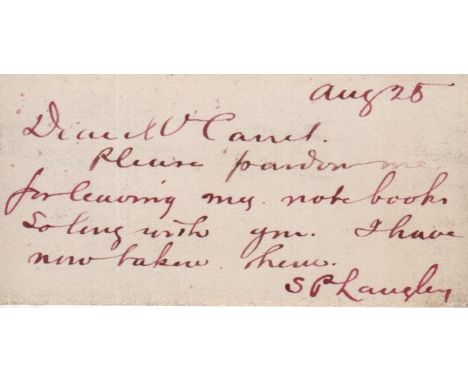 Aug 25
Dear Mr
Please pardon me
for leaving my note books
so long with you. I have
now taken them.
S P Langley